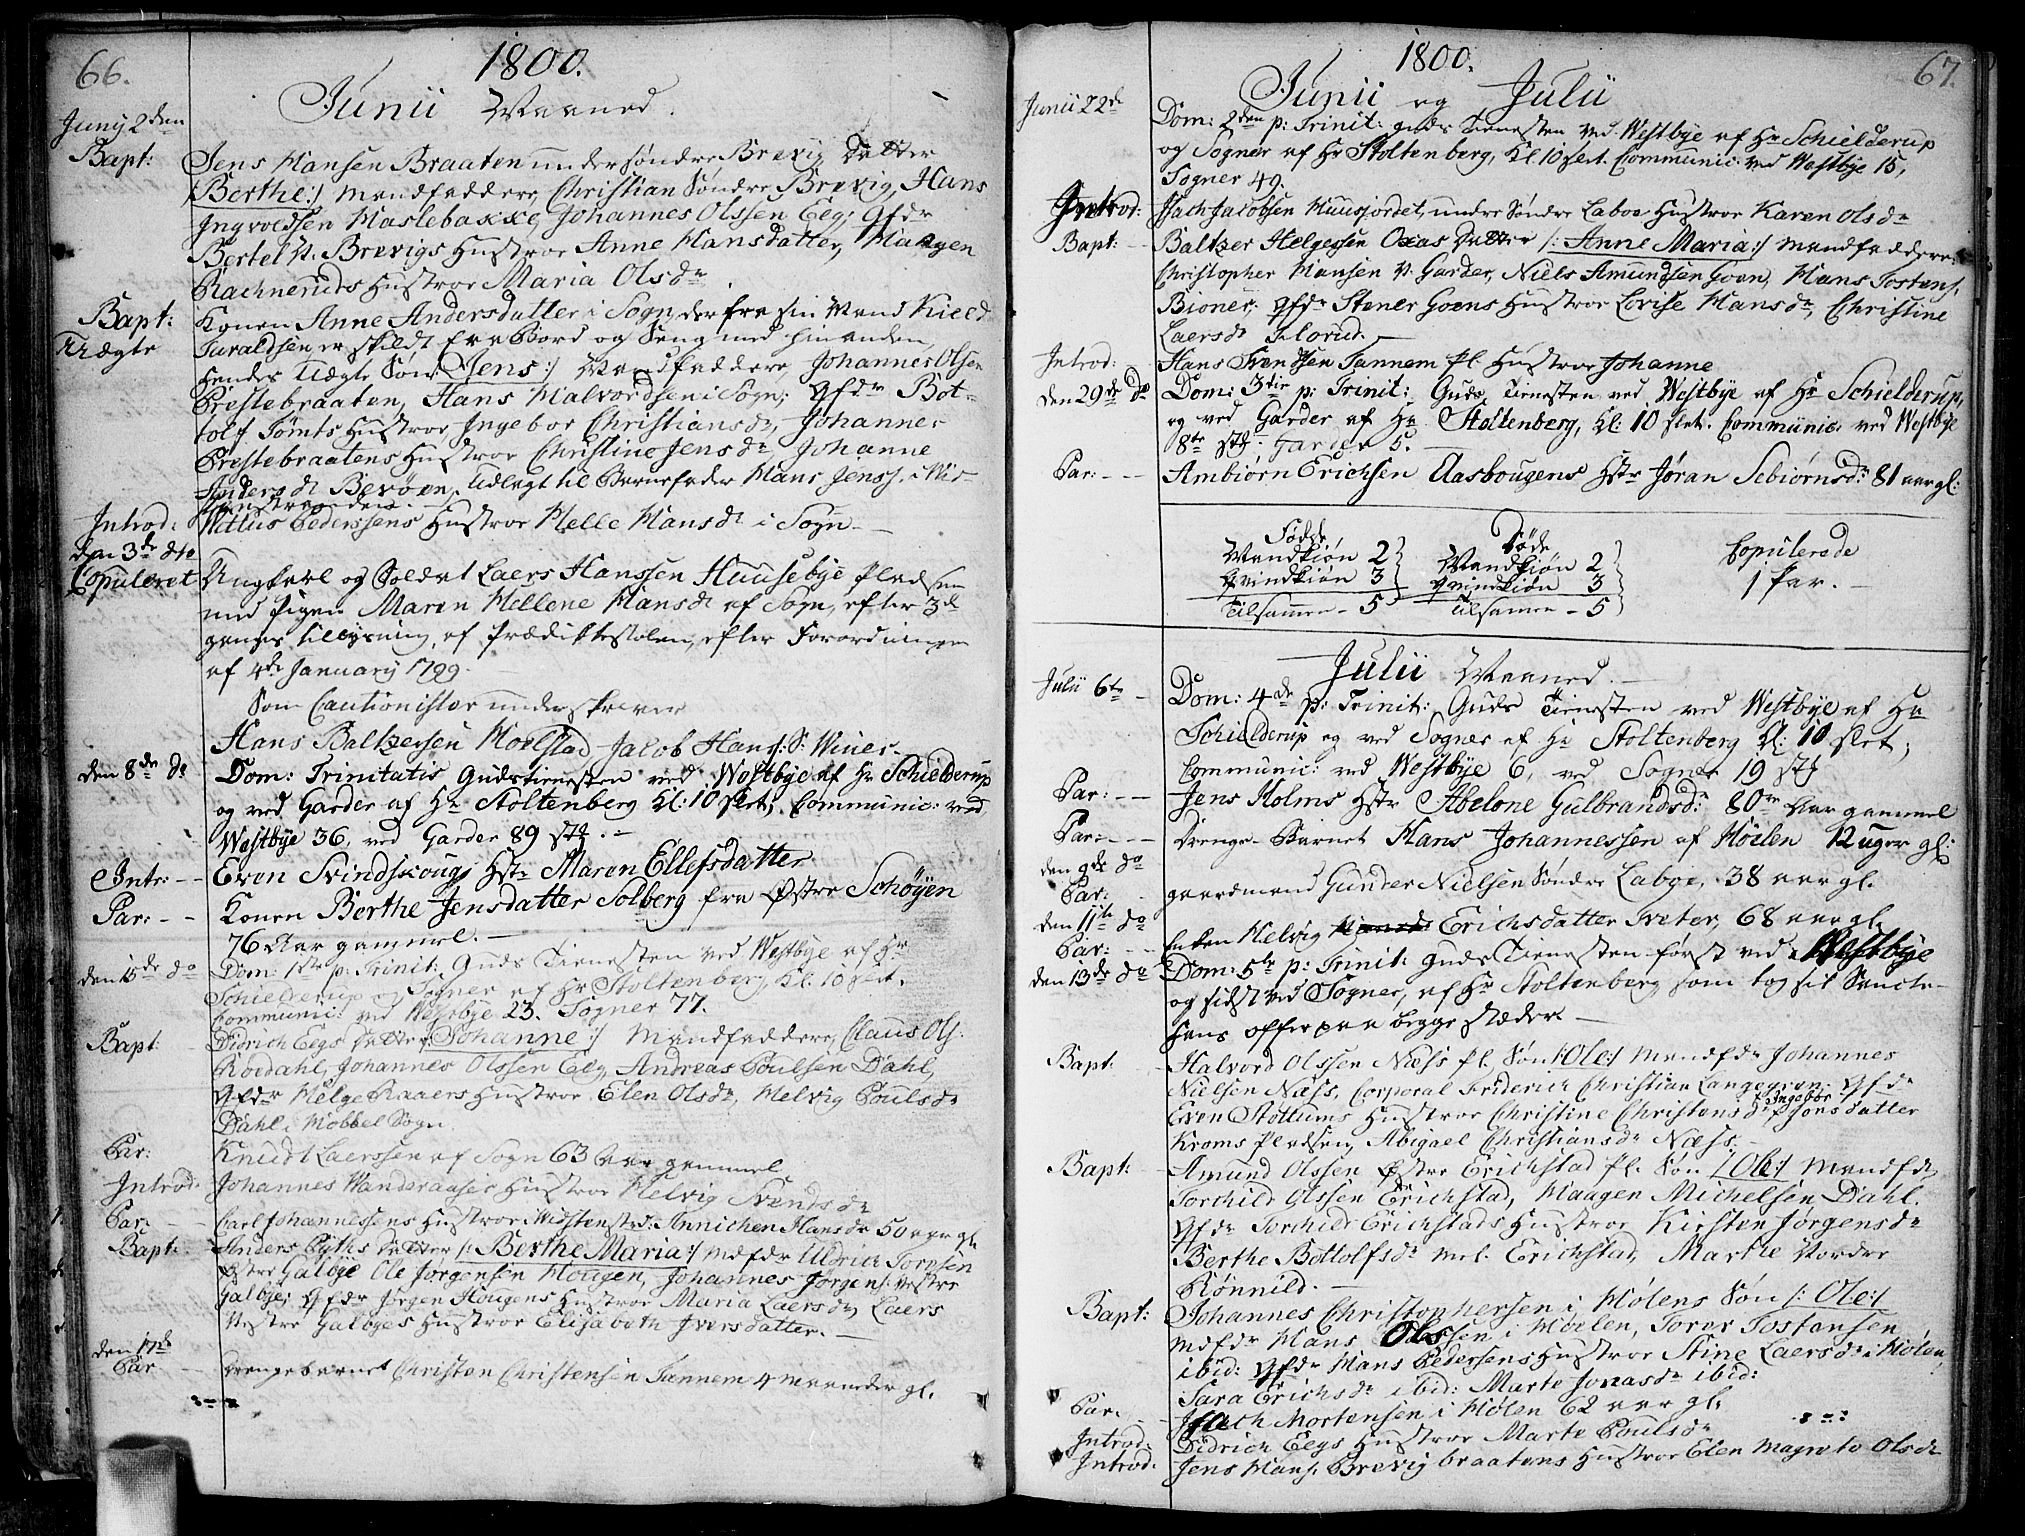 66.
1800.
Junii Maaned.
Juny 2den
Bapt:
Jens Hansen Braaten under søndre Brevig Datter
/:Berthe:/ Mandfaddere, Christian Søndre Brevig, Hans
Ingvoldsen Haslebakke, Johannes Olssen Eeg; Qfdr
Bertel N. Brevigs Hustroe Anne Hansdatter, Haagen
Rachneruds Hustroe Maria Olsdr
Bapt:
Uægte
Konen Anne Andersdatter i Sogn, der fra sin Mand Kield
Taraldsen er skildt fra Bord og Seng med hinanden,
hendes Uægte Søn /:Jens:/ Mandfaddere, Johannes Olsen
Prestebraaten, Hans Halvordsen i Sogn; Qfdr Bot-
tolf Tømts Hustroe Ingebor Christiansdr, Johannes
Prestebraatens Hustroe Christine Jensdr, Johanne
Andersdr Berøen, Udlagt til Barnefader Hans Jenss. i
Introd:
Nillus Pederssens Hustroe Helle Hansdr i Sogn
den 3de dto
Copuleret
Ungkarl og Soldat Laers Hanssen Huusebye Pladsen
med Pigen Maren Hellene Hansdr af Sogn, efter 3de
ganges tillysning af Prædikestolen, efter Forordningen
af 4de January 1799.
Som Cautionister underskrever
Hans Baltzersen Hoelstad Jacob Hans: S: Winer
den 8de do
Dom: Trinitatis Gudstienesten ved Westbye af Hr Schielderup
og ved Garder af Hr Stoltenberg Kl: 10 slet; Communic: ved
Westbye 36, ved Garder 89 stk. -
Intr: --
Even Svindskougs Hstr Maren Ellefsdatter
Par: --
Konen Berthe Jensdatter Solberg fra Østre Schøyen
76 Aar gammel. -
den 15de do
Dom: 1ste p: Trinit: Guds Tienesten ved Westbye af Hr
Schielderup og Sogner af Hr Stoltenberg, Kl. 10 slet.
Communic: ved Westbye 23. Sogner 77.
Bapt:
Didrich Eegs Datter /:Johanne:/ Mandfaddere, Claus Ols.
Roedahl, Johannes Olssen Eeg, Andreas Poulsen Dahl,
Qfdr Helge Raaers Hustroe Elen Olsdr, Helvig Poulsdr
Dahl i Hobbel Sogn.
Par:
Knudt Laerssen af Sogn 63 Aar gammel
Introd:
Johannes Wanderaases Hustroe Helvig Svendsdr
Par: --
Carl Johannessens Hustroe i Hvidsten stæd. Annichen Hansdr 50 aar gl.
Bapt:
Anders Datter /:Berthe Maria:/ Mdfdr Uldrich Toresen
Østre Galbye Ole Jørgensen Hougen, Johannes Jørgens. Vestre
Galbye; Qfdr Jørgen Hougens Hustroe Maria Laersdr, Laers
Vestre Galbyes Hustroe Elisabeth Iversdatter. -
den 17de
Par --
Drengebarnet Christen Christensen Sannem 4 Maaneder gl.
67.
1800.
Junii og Julii
Junii 22de
Dom: 2den p: Trinit: Guds Tienesten ved Westbye af Hr Schielderup
og Sogner af Hr Stoltenberg, Kl. 10 slet. Communic: ved Westbye 15,
Sogner 49.
Introd:
Isach Jacobsen Huusjordet, undre Søndre Laboe Hustroe Karen Olsdr
Bapt: --
Baltzer Helgesen Oxas Datter /:Anne Maria:/ Mandfaddere:
Christopher Hansen N. Garder, Niels Amundsen Goen, Hans Tostens.
Bioner, Qfdr Stener Goens Hustroe Lovise Hansdr, Christine
Laersdr Florud. -
Introd:
Hans Svendsen Sannem Pl. Hustroe Johanne
den 29de do
Dom: 3tie p: Trinit: Guds Tienesten ved Westbye af Hr Schielderup,
og ved Garder af Hr Stoltenberg, Kl: 10 slet. Communic: ved Westbye
8te stk. Garder 5.
Par: ---
Ambiørn Erichsen Aasbougens Hstr Jøran Sebiørnsdr 81 aar gl:
Fødde
Mandkiøn 2
Qvindkiøn 3
Tilsamen - 5
Døde
Mandkiøn 2
Qvindkiøn 3
Tilsamen - 5
Copulerede
1 Par. -
Julii Maaned. -
Julii 6te -
Dom: 4de p: Trinit: Guds Tienesten ved Westbye af Hr
Schielderup og ved Sogner af Hr Stoltenberg Kl: 10 slet;
Communic: ved Westbye 6, ved Sogner 19 stk
Par: --
Jens Holms Hstr Abelone Gulbrandsdr: 80ve Aar gammel
Par: ---
Drenge-Barnet Hans Johannessen af Hoelen 12 uger gl:
den 9de do
Par:
gaardmand Gunder Nielsen Søndre Laboe, 38 aar gl.
den 11te do
Par: --
Enken Helvig Erichsdatter Sveter, 68 aar gl.
den 13de do
Dom: 5te p: Trinit: Guds Tienesten først ved Westbye
og sidst ved Sogner, af Hr Stoltenberg som tog sit Sancte-
hans offer paa begge stæder. -
Bapt:
Halvord Olssen Næss pl. Søn /:Ole:/ Mandfdr Johannes
Nielsen Næss, Corporal Friderich Christian Langegren; Qfdr
Even Stottums Hustroe Christine Christensdr, Ingebor Jonsdatter
Kroms Pladsen, Abigael Christiansdr Næss. -
Bapt: -
Amund Olssen Østre Erichstad pl. Søn /:Ole:/ Mandfdr
Torchild Olssen Erichstad, Haagen Michelsen Dahl.
Qfdr Torchild Erichstads Hustroe Kirsten Jørgensdr
Berthe Bottolfsdr mel. Erichstad, Marthe Nordre
Rønnild. -
Bapt:
Johannes Christophersen i Hølens Søn /:Ole:/
Mdfdr Hans Olssen i Hoelen, Torer Tostensen
ibid: Qfdr Hans Pedersens Hustroe Stine Laersdr i Hølen,
Sara Erichsdr ibid: Marte Jonasdr ibid:
Par: -
Isach Mortensen i Hølen 62 aar gl.
Introd:
Didrich Eegs Hustroe Marte Poulsdr
Introd:
Jens Hans. Brevig braatens Hustroe Elen Magrete Olsdr